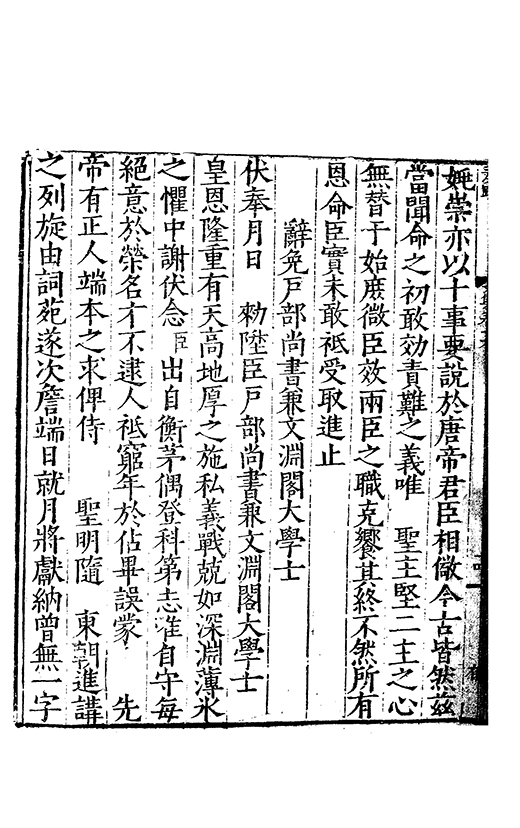 姚崇亦以十事要說於唐帝君臣相儆今古皆然茲
當聞命之初敢効責難之義唯　聖主堅二主之心
無替于始庶微臣效兩臣之職克饗其終不然所有
恩命臣實未敢祗受取進止
辭免戶部尚書兼文淵閣大學士
伏奉月日　勑陞臣戶部尚書兼文淵閣大學士
皇恩隆重有天高地厚之施私義戰兢如深淵薄氷
之懼中謝伏念臣出自衡茅偶登科第志准自守每
絕意於榮名才不逮人祗窮年於佔畢誤蒙　先
帝有正人端本之求俾侍　聖明隨　東朝進講
之列旋由詞苑遂次詹端日就月將獻納曾無一字